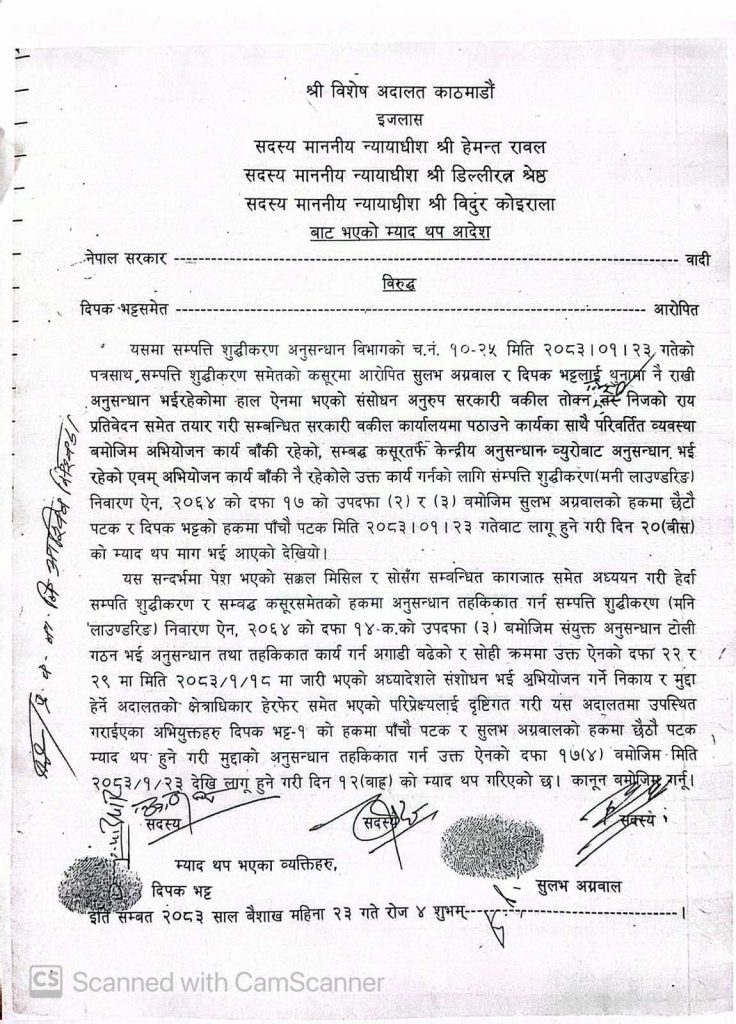 श्री विशेष अदालत काठमाडौं
इजलास
सदस्य माननीय न्यायाधीश श्री हेमन्त रावल
सदस्य माननीय न्यायाधीश श्री डिल्लीरत्न श्रेष्ठ
सदस्य माननीय न्यायाधीश श्री विदुर कोइराला
बाट भएको म्याद थप आदेश
नेपाल सरकार ---------- वादी
विरुद्ध
दिपक भट्टसमेत ---------- आरोपित
यसमा सम्पत्ति शुद्धीकरण अनुसन्धान विभागको च.नं. १०-२५ मिति २०८३।०१।२३ गतेको
पत्रसाथ सम्पत्ति शुद्धीकरण समेतको कसूरमा आरोपित सुलभ अग्रवाल र दिपक भट्टलाई थुनामा नै राखी
अनुसन्धान भईरहेकोमा हाल ऐनमा भएको संसोधन अनुरुप सरकारी वकील तोक्न निजको राय
प्रतिवेदन समेत तयार गरी सम्बन्धित सरकारी वकील कार्यालयमा पठाउने कार्यका साथै परिवर्तित व्यवस्था
बमोजिम अभियोजन कार्य बाँकी रहेको, सम्बद्ध कसूरतर्फ केन्द्रीय अनुसन्धान व्युरोबाट अनुसन्धान भई
रहेको एवम् अभियोजन कार्य बाँकी नै रहेकोले उक्त कार्य गर्नको लागि संम्पत्ति शुद्धीकरण(मनी लाउण्डरिङ)
निवारण ऐन, २०६४ को दफा १७ को उपदफा (२) र (३) बमोजिम सुलभ अग्रवालको हकमा छैटौ
पटक र दिपक भट्टको हकमा पाँचौ पटक मिति २०८३।०१।२३ गतेबाट लागू हुने गरी दिन २०(बीस)
को म्याद थप माग भई आएको देखियो।
यस सन्दर्भमा पेश भएको सक्कल मिसिल र सोसँग सम्वन्धित कागजात समेत अध्ययन गरी हेर्दा
सम्पति शुद्धीकरण र सम्वद्ध कसूरसमेतको हकमा अनुसन्धान तहकिकात गर्न सम्पत्ति शुद्धीकरण (मनि
लाउण्डरिङ) निवारण ऐन, २०६४ को दफा १४-क.को उपदफा (३) बमोजिम संयुक्त अनुसन्धान टोली
गठन भई अनुसन्धान तथा तहकिकात कार्य गर्न अगाडी वढेको र सोही क्रममा उक्त ऐनको दफा २२ र
२९ मा मिति २०८३/१/१८ मा जारी भएको अध्यादेशले संशोधन भई अभियोजन गर्ने निकाय र मुद्दा
हेर्ने अदालतको क्षेत्राधिकार हेरफेर समेत भएको परिप्रेक्ष्यलाई दृष्टिगत गरी यस अदालतमा उपस्थित
गराईएका अभियुक्तहरु दिपक भट्ट-१ को हकमा पाँचौ पटक र सुलभ अग्रवालको हकमा छैठौ पटक
म्याद थप हुने गरी मुद्दाको अनुसन्धान तहकिकात गर्न उक्त ऐनको दफा १७(४) बमोजिम मिति
२०८३/१/२३ देखि लागू हुने गरी दिन १२(वाह) को म्याद थप गरिएको छ। कानून बमोजिम गर्नू।
सदस्य सदस्य सदस्य
म्याद थप भएका व्यक्तिहरु,
दिपक भट्ट सुलभ अग्रवाल
इति सम्बत २०८३ साल बैशाख महिना २३ गते रोज ४ शुभम्----------।
CS Scanned with CamScanner